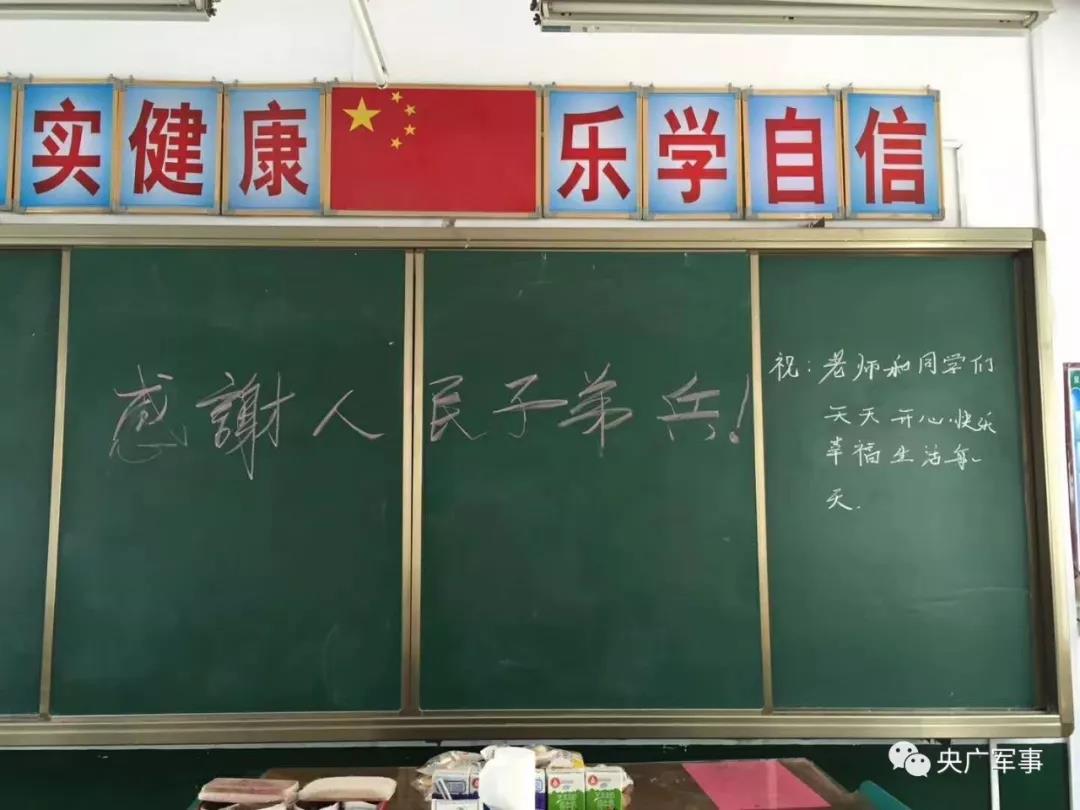 实健康 乐学自信
感謝人民子弟兵!
祝:老师和同学们
天天开心快乐
幸福生活每一
天.
央广军事